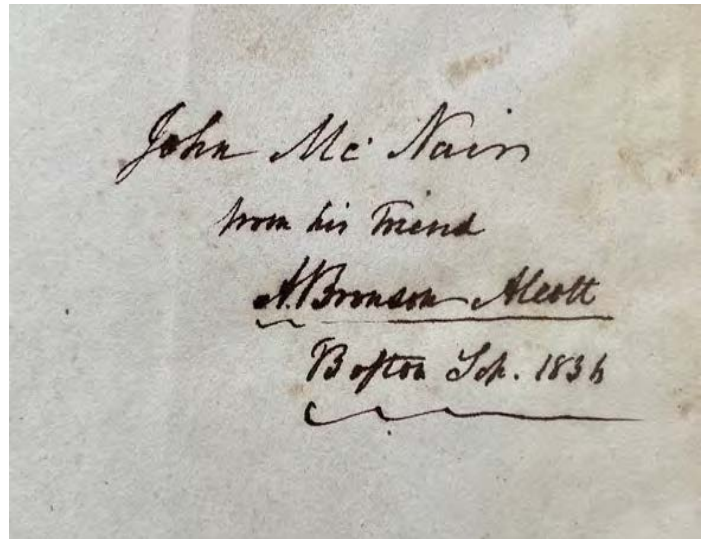 John Mc Nair
from his Friend
A. Bronson Alcott
Boſton Sep. 1836